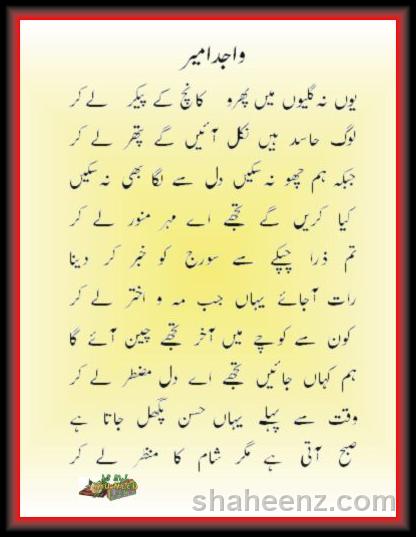 واجد امیر
یوں نہ گلیوں میں پھرو کانچ کے پیکر لے کر
لوگ حاسد ہیں نکل آئیں گے پتھر لے کر
جبکہ ہم چھو نہ سکیں دل سے لگا بھی نہ سکیں
کیا کریں گے تجھے اے مہر منور لے کر
تم ذرا چپکے سے سورج کو خبر کر دینا
رات آجائے یہاں جب مہ و اختر لے کر
کون سے کوچے میں آخر تجھے چین آئے گا
ہم کہاں جائیں تجھے اے دل مضطر لے کر
وقت سے پہلے یہاں حسن پگھل جاتا ہے
صبح آتی ہے مگر شام کا منظر لے کر
shaheenz.com